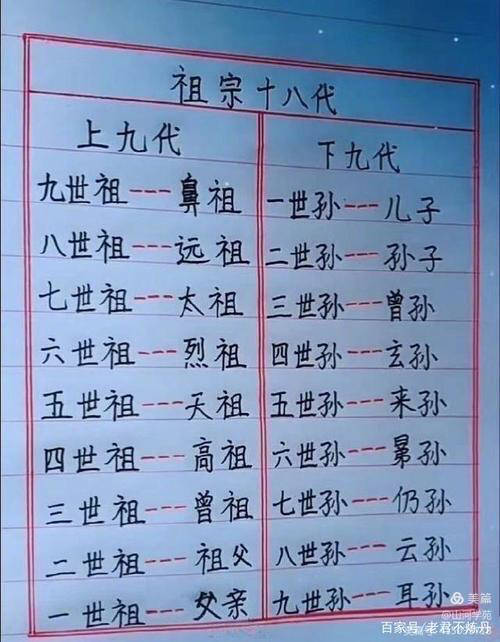 祖宗十八代
上九代
九世祖---鼻祖
八世祖---远祖
七世祖---太祖
六世祖---烈祖
五世祖---天祖
四世祖---高祖
三世祖---曾祖
二世祖---祖父
一世祖---父亲
下九代
一世孙---儿子
二世孙---孙子
三世孙---曾孙
四世孙---玄孙
五世孙---来孙
六世孙---晜孙
七世孙---仍孙
八世孙---云孙
九世孙---耳孙
美篇
@山河学苑
百家号/老君不炼丹